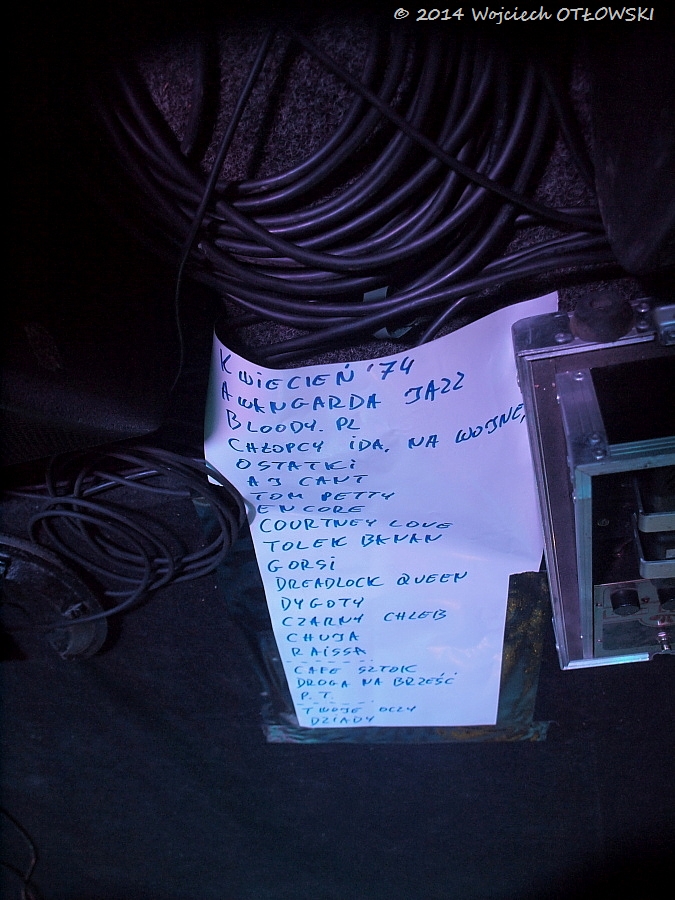 © 2014 Wojciech OTŁOWSKI
KWIECIEŃ '74
AWANGARDA JAZZ
BLOODY. PL
CHŁOPCY IDĄ NA WOJNĘ,
OSTATKI
AJ CANT
TOM PETTY
ENCORE
COURTNEY LOVE
TOLEK BANAN
GORSI
DREADLOCK QUEEN
DYGOTY
CZARNY CHLEB
CHUJA
RAISSA
CAFE SZTOK
DROGA NA BRZEŚĆ
P.T.
TWOJE OCZY
DZIADY